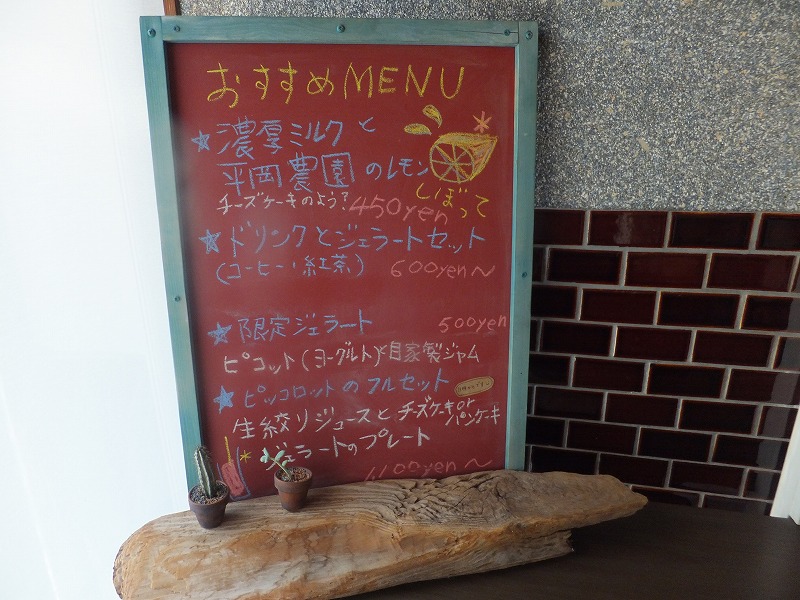 おすすめMENU
★濃厚ミルクと
平岡農園のレモン
しぼって
チーズケーキのよう? 450yen
★ドリンクとジェラートセット
(コーヒー・紅茶) 600yen〜
★限定ジェラート 500yen
ピコット(ヨーグルト)と自家製ジャム
★ピッコロットのフルセット
生絞りジュースとチーズケーキor
パンケーキ
ジェラートのプレート
1100yen〜